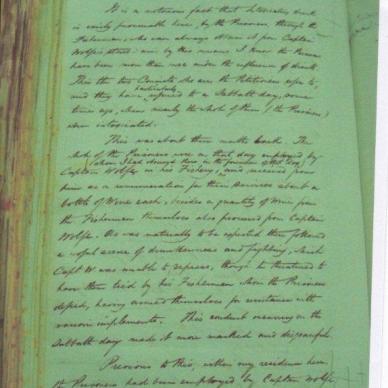 It is a notorious fact that Intoxicating drink
is easily procurable here, by the Prisoners, through the
Fishermen, who can always obtain it from Captain
Wolfe's stand: and by this means I know the Prisoners
have been more than once under the influence of drink.
Thus the two Convicts who are the Petitioners refer to,
particularly
and they have referred to a Sabbath day, some
times ago, when nearly the whole of them (the Prisoners)
were intoxicated.
This was about three months back. The
whole of the Prisoners were on that day employed by
(whom I had charged them in the quarters of that day)
Captain Wolfe, in his Fishery, and received from
him as a remuneration for their services about a
bottle of Wine each, besides a quantity of Wine from
the Fishermen themselves also procured from Captain
Wolfe. As was naturally to be expected there followed
a woful scene of drunkenness and fighting, which
Capt W was unable to repress, though he threatened to
have them tied by his Fishermen whom the Prisoners
defied, having armed themselves for resistance with
various implements. This conduct occurring on the
Sabbath day made it more marked and disgraceful.
Previous to this, within my residence here
the Prisoners had been employed by Captain Wolfe